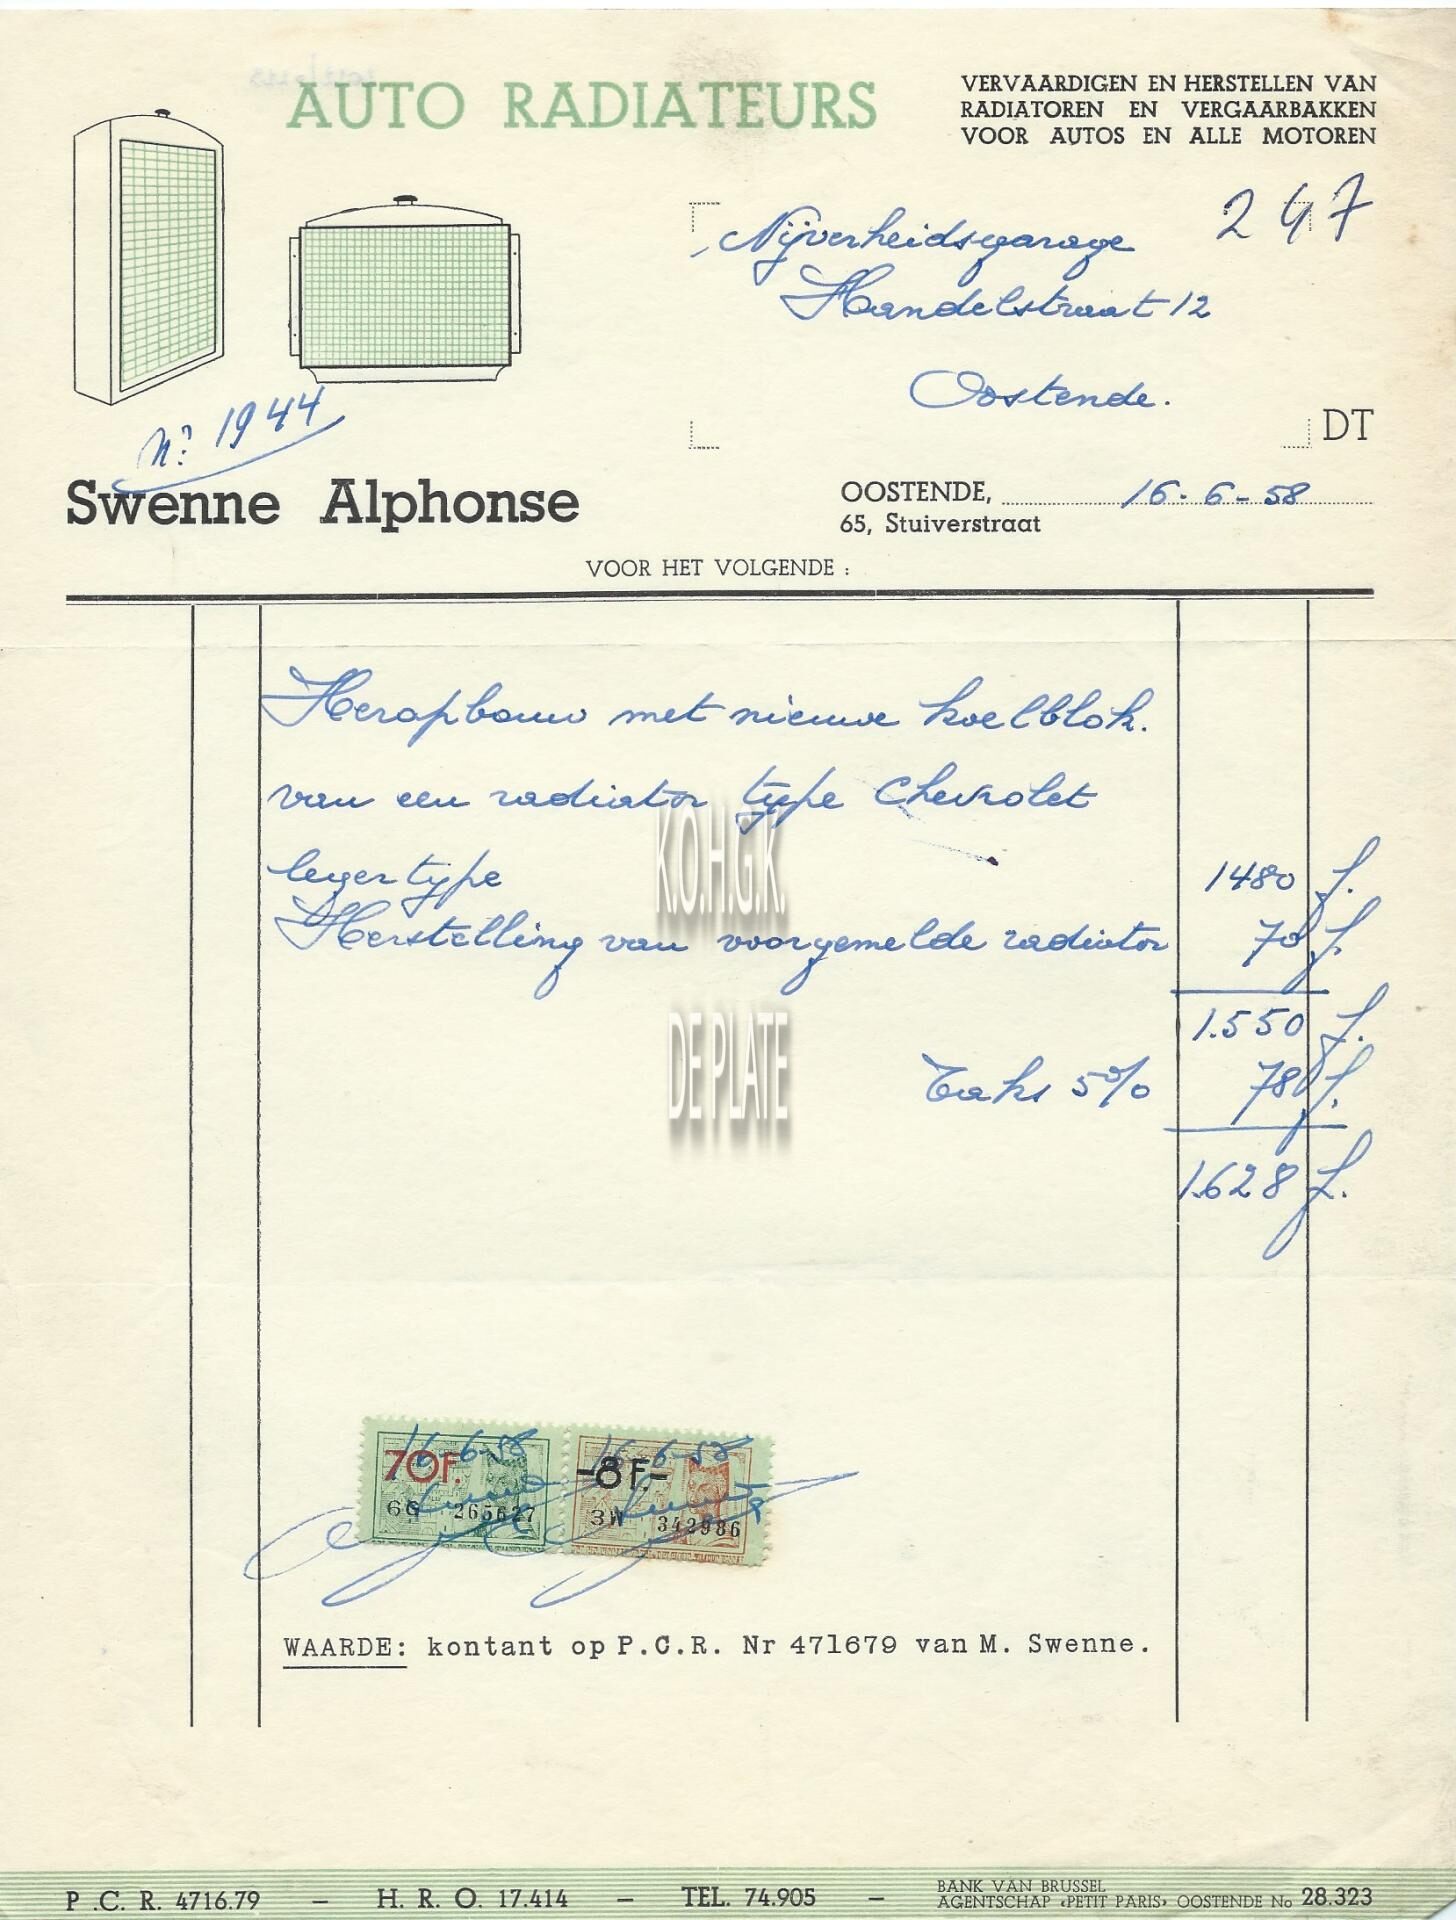 AUTO RADIATEURS
VERVAARDIGEN EN HERSTELLEN VAN
RADIATOREN EN VERGAARBAKKEN
VOOR AUTOS EN ALLE MOTOREN
247
Nijverheidsgarage
Handelstraat 12
Oostende.
DT
N: 1944
Swenne Alphonse
OOSTENDE, 16-6-58
65, Stuiverstraat
VOOR HET VOLGENDE :
Heropbouw met nieuwe koelblok.
van een radiator type Chevrolet
leger type 1480 f.
Herstelling van voorgemelde radiator 70 f.
1.550 f.
Taks 5% 78 f.
1.628 f.
K.O.H.G.K.
DE PLATE
16-6-58 16-6-58
70F. -8F.-
6G 265627 3W 342986
WAARDE: kontant op P.C.R. Nr 471679 van M. Swenne.
P.C.R. 4716.79 – H. R. O. 17.414 – TEL. 74.905 –
BANK VAN BRUSSEL
AGENTSCHAP «PETIT PARIS» OOSTENDE No 28.323